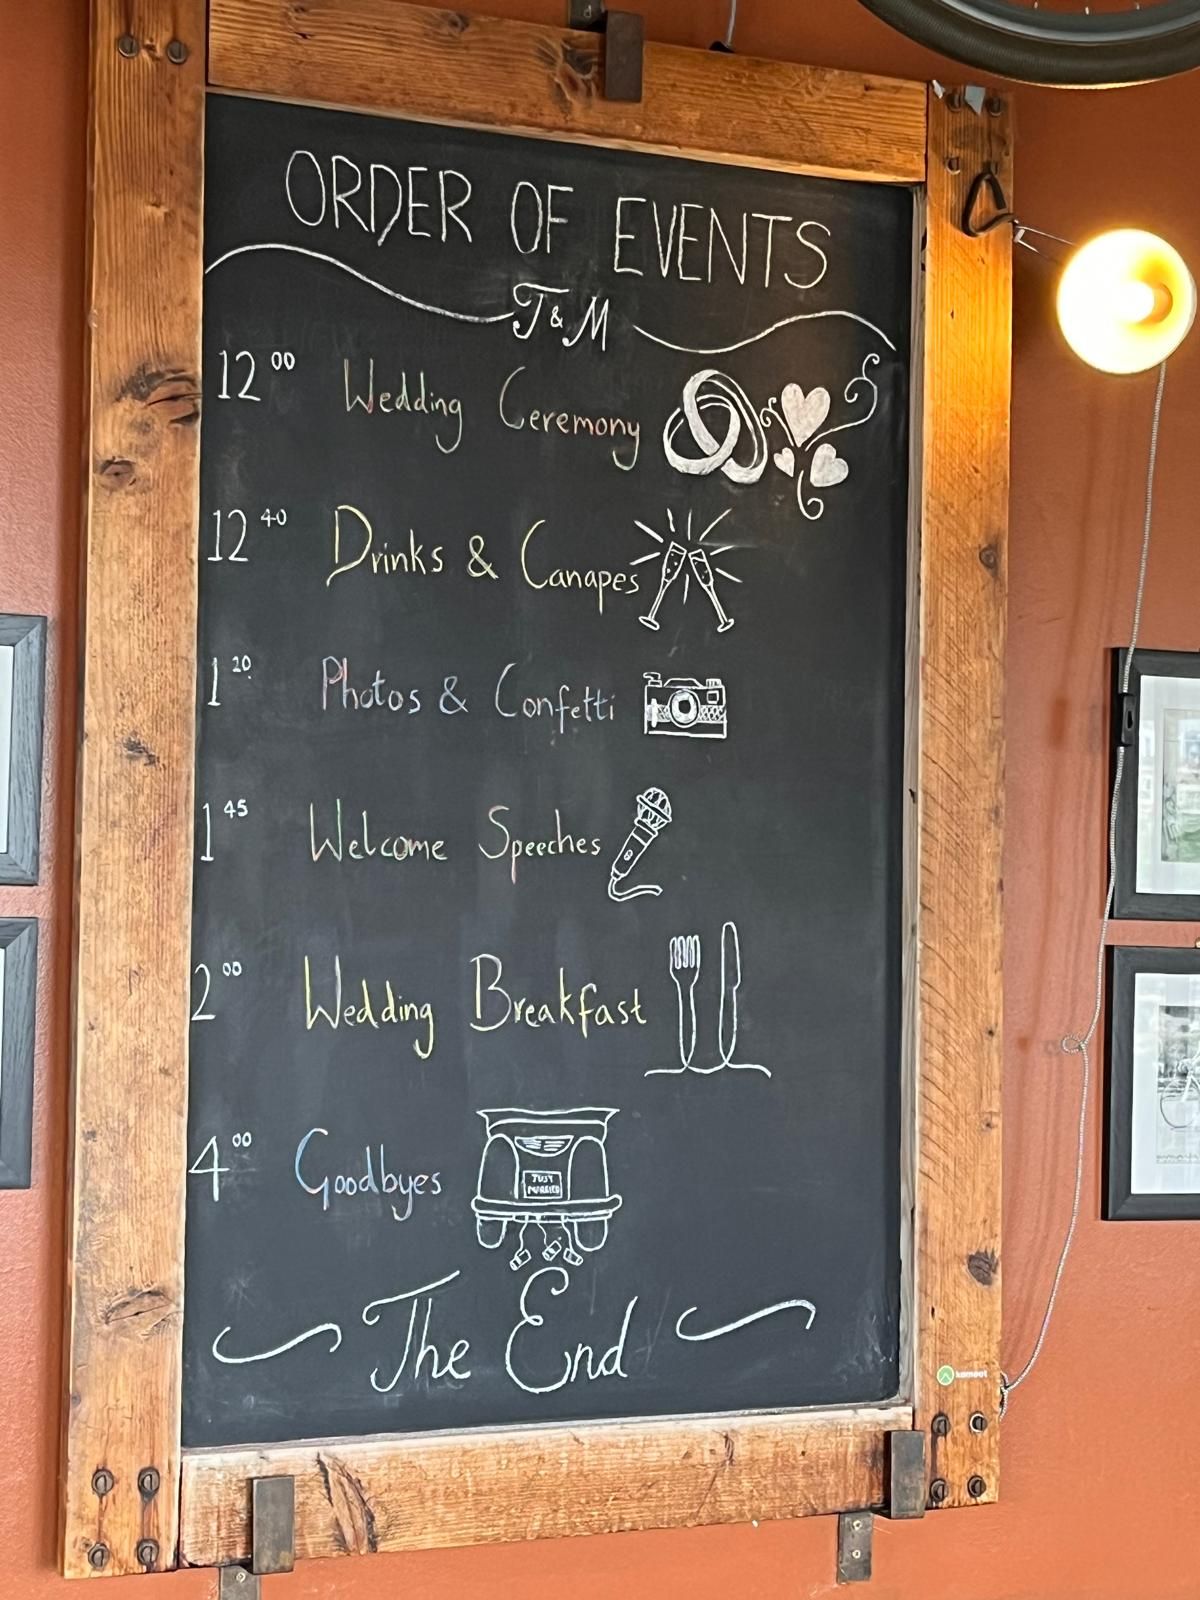 ORDER OF EVENTS
T & M
12 00 Wedding Ceremony
12 40 Drinks & Canapes
1 20 Photos & Confetti
1 45 Welcome Speeches
2 00 Wedding Breakfast
4 00 Goodbyes
JUST
MARRIED
The End
komoot